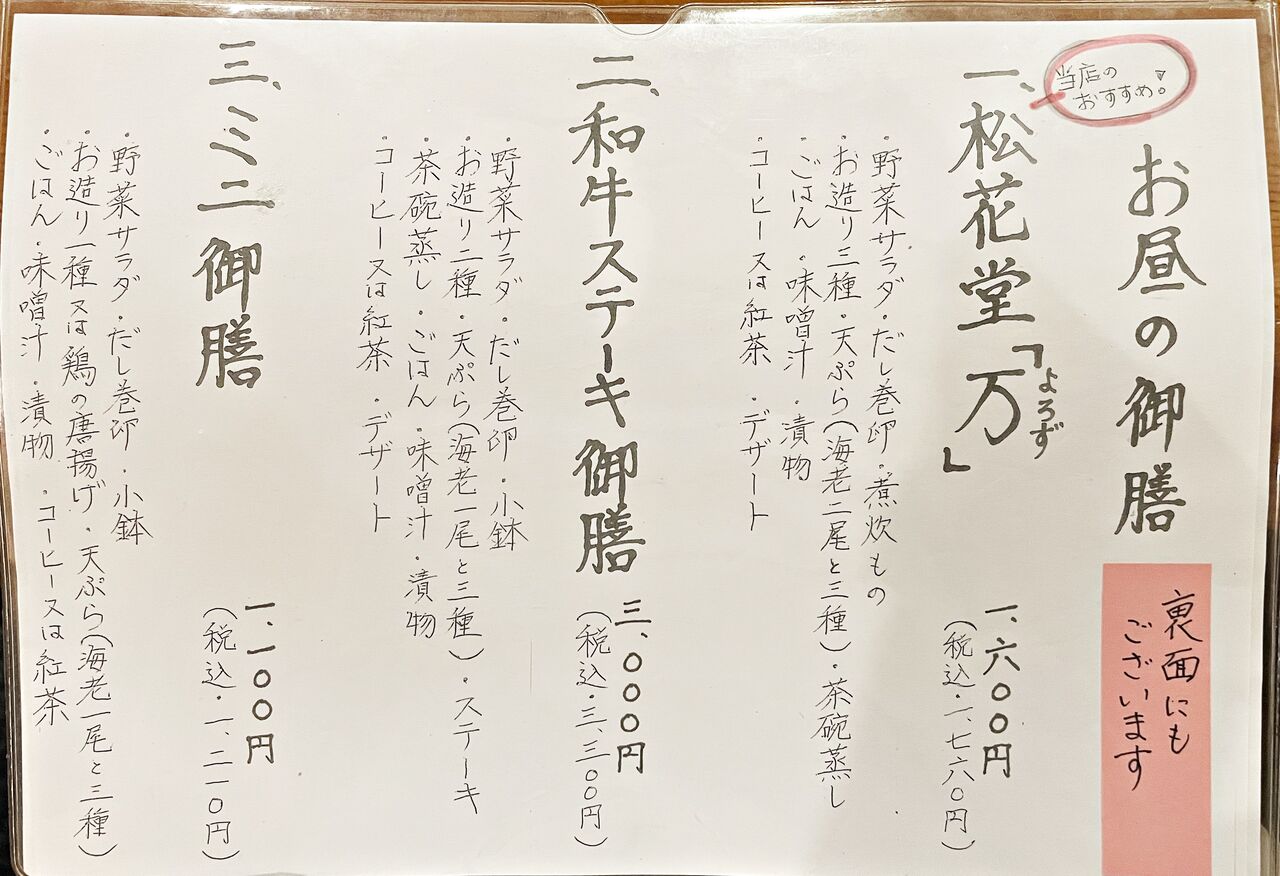 お昼の御膳
裏面にも
ございます
当店の
おすすめ。
一、松花堂「万」
よろず
一、六〇〇円
(税込・一、七六〇円)
・野菜サラダ・だし巻卵・煮炊もの
・お造り三種・天ぷら(海老二尾と三種)・茶碗蒸し
・ごはん・味噌汁・漬物
・コーヒー又は紅茶・デザート
二、和牛ステーキ御膳
三、〇〇〇円
(税込・三、三〇〇円)
・野菜サラダ・だし巻卵・小鉢
・お造り二種・天ぷら(海老一尾と三種)・ステーキ
・茶碗蒸し・ごはん・味噌汁・漬物
・コーヒー又は紅茶・デザート
三、ミニ御膳
一、一〇〇円
(税込・一、二一〇円)
・野菜サラダ・だし巻卵・小鉢
・お造り一種又は鶏の唐揚げ・天ぷら(海老一尾と三種)
・ごはん・味噌汁・漬物・コーヒー又は紅茶